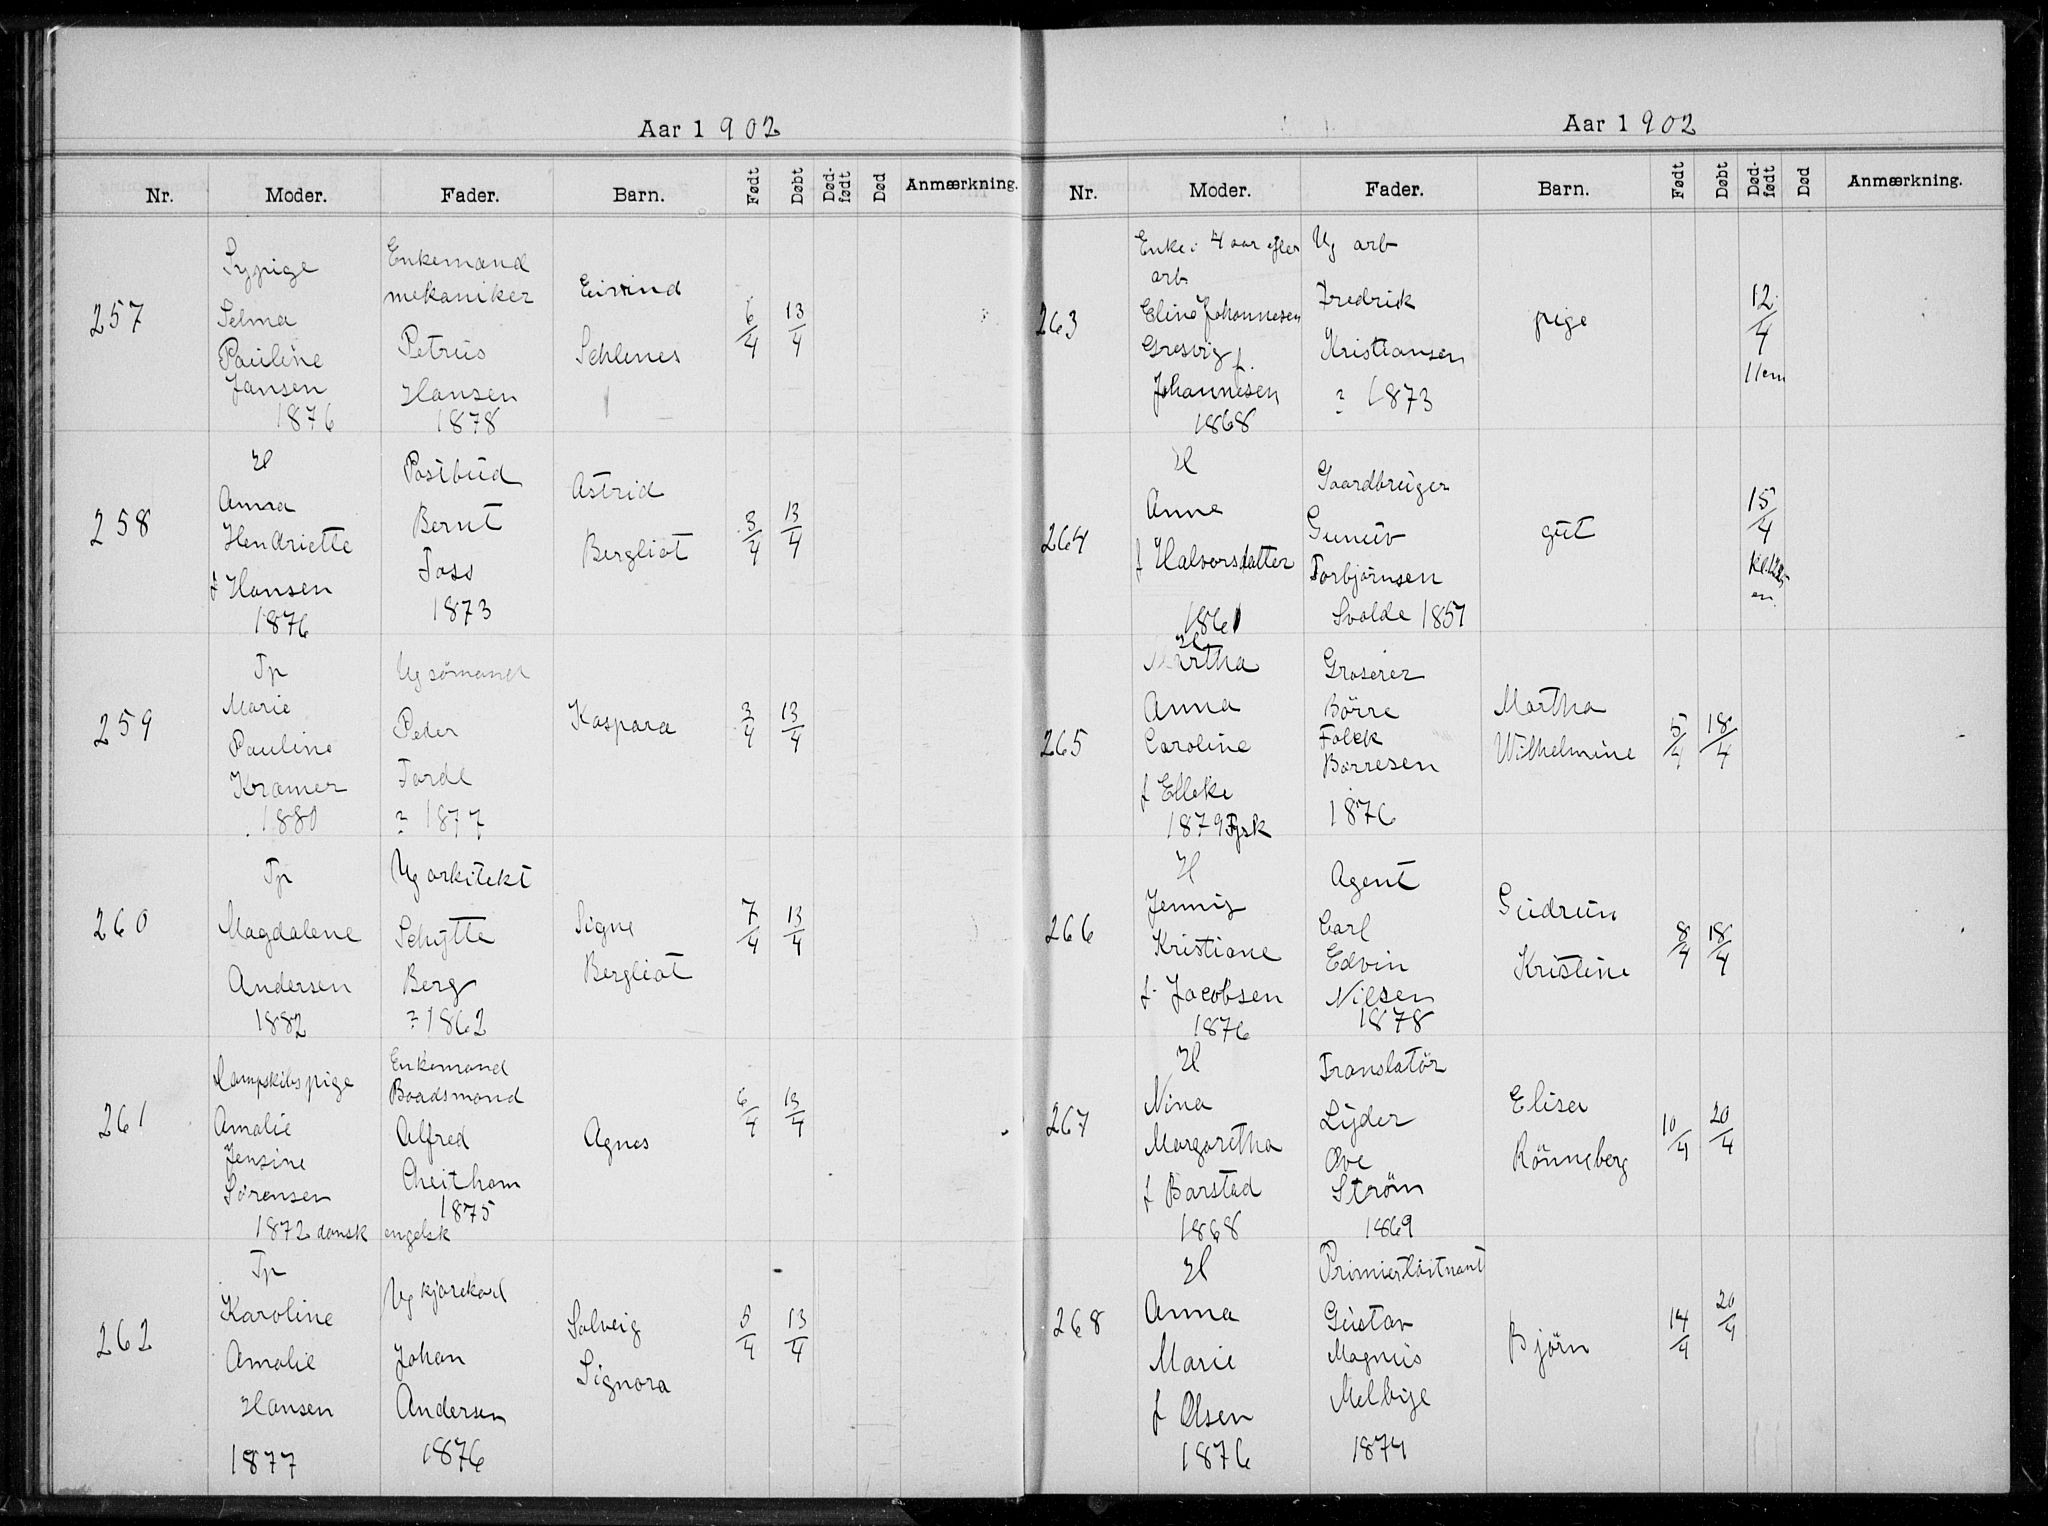 Aar 1902
Nr. Moder. Fader. Barn. Født Døbt Død-født Død Anmærkning.
257
Sypige
Selma
Pauline
Jansen
1876
Enkemand
mekaniker
Petrus
Hansen
1878
Eivind
6/4
13/4
258
H
Anna
Hendriette
f Hansen
1876
Postbud
Bernt
Foss
1873
Astrid
Bergliot
3/4
13/4
259
Tp
Marie
Pauline
Kramer
1880
Ug sømand
Peder
Torde
? 1877
Kaspara
3/4
13/4
260
Tp
Magdalene
Andersen
1882
Ug arkitekt
Schytte
Berg
? 1862
Signe
Bergliot
7/4
13/4
261
Dampskibspige
Amalie
Jensine
Sørensen
1872 dansk
Enkemand
Baadsmand
Alfred
Cheitham
1875
engelsk
Agnes
6/4
13/4
262
Tp
Karoline
Amalie
Hansen
1877
Ug kjørekarl
Johan
Andersen
1876
Solveig
Signora
5/4
13/4
Aar 1902
Nr. Moder. Fader. Barn. Født Døbt Død-født Død Anmærkning.
263
Enke i 4 aar efter
arb.
Eline Johannesen
Gresvig f.
Johannesen
1868
Ug arb
Fredrik
Kristiansen
? 1873
pige
12/4
11 em
264
H
Anne
f Halvorsdatter
1861
Gaardbruger
Gunuv
Torbjørnsen
Svalde 1857
gut
15/4
265
H
Martha
Anna
Caroline
f Elleke
1879 Tysk
Groserer
Børre
Falck
Børresen
1876
Martha
Wilhelmine
5/4
18/4
266
H
Jenny
Kristiane
f. Jacobsen
1876
Agent
Carl
Edvin
Nilsen
1878
Gudrun
Kristine
8/4
18/4
267
H
Nina
Margaretha
f Barstad
1868
Translatør
Lyder
Ove
Strøm
1869
Elisa
Rønneberg
10/4
20/4
268
H
Anna
Marie
f Olsen
1876
Primierløitnant
Gustav
Magnus
Melbye
1874
Bjørn
14/4
20/4